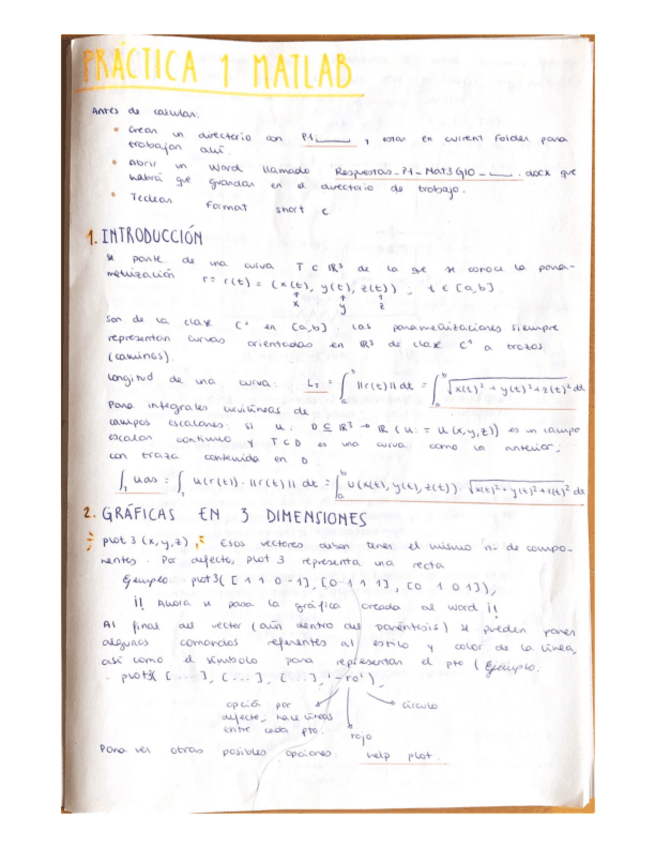 PRÁCTICA 1 MATLAB
Antes de calcular:
• Crear un directorio con P1_____ , estar en current folder para
trabajar ahí.
• Abrir un Word llamado Respuestas_P1_Mat3G10_____.docx que
habrá que guardar en el directorio de trabajo.
• Teclear format short e
1. INTRODUCCIÓN
Se parte de una curva T ⊂ ℝ³ de la que se conoce la para-
metrización r = r(t) = (x(t), y(t), z(t)) ; t ∈ [a,b].
x y z
Son de la clase C¹ en [a,b]. Las parametrizaciones siempre
representan curvas orientadas en ℝ³ de clase C¹ a trozos
(caminos).
Longitud de una curva: L_T = ∫_a^b ||r(t)|| dt = ∫_a^b √(x(t)² + y(t)² + z(t)²) dt
Para integrales curvilíneas de
campos escalares: si u: D ⊆ ℝ³ → ℝ (u: = u(x,y,z)) es un campo
escalar continuo y T ⊂ D es una curva como la anterior,
con traza contenida en D.
∫_T u ds = ∫_T u(r(t)) · ||r(t)|| dt = ∫_a^b u(x(t), y(t), z(t)) · √(x(t)² + y(t)² + z(t)²) dt
2. GRÁFICAS EN 3 DIMENSIONES
plot 3 (x,y,z) , Esos vectores deben tener el mismo nº de compo-
nentes. Por defecto, plot 3 representa una recta
Ejemplo: plot3([1 1 0 -1], [0 1 1 1], [0 1 0 1]),
¡¡ Ahora se pasa la gráfica creada al word ¡¡
Al final del vector (aún dentro del paréntesis) se pueden poner
algunos comandos referentes al estilo y color de la línea,
así como el símbolo para representar el pto (Ejemplo:
. plot3([...], [...], [...], '-ro'),
opción por
defecto, hace líneas
entre cada pto.
rojo
círculo
Para ver otras posibles opciones: help plot.